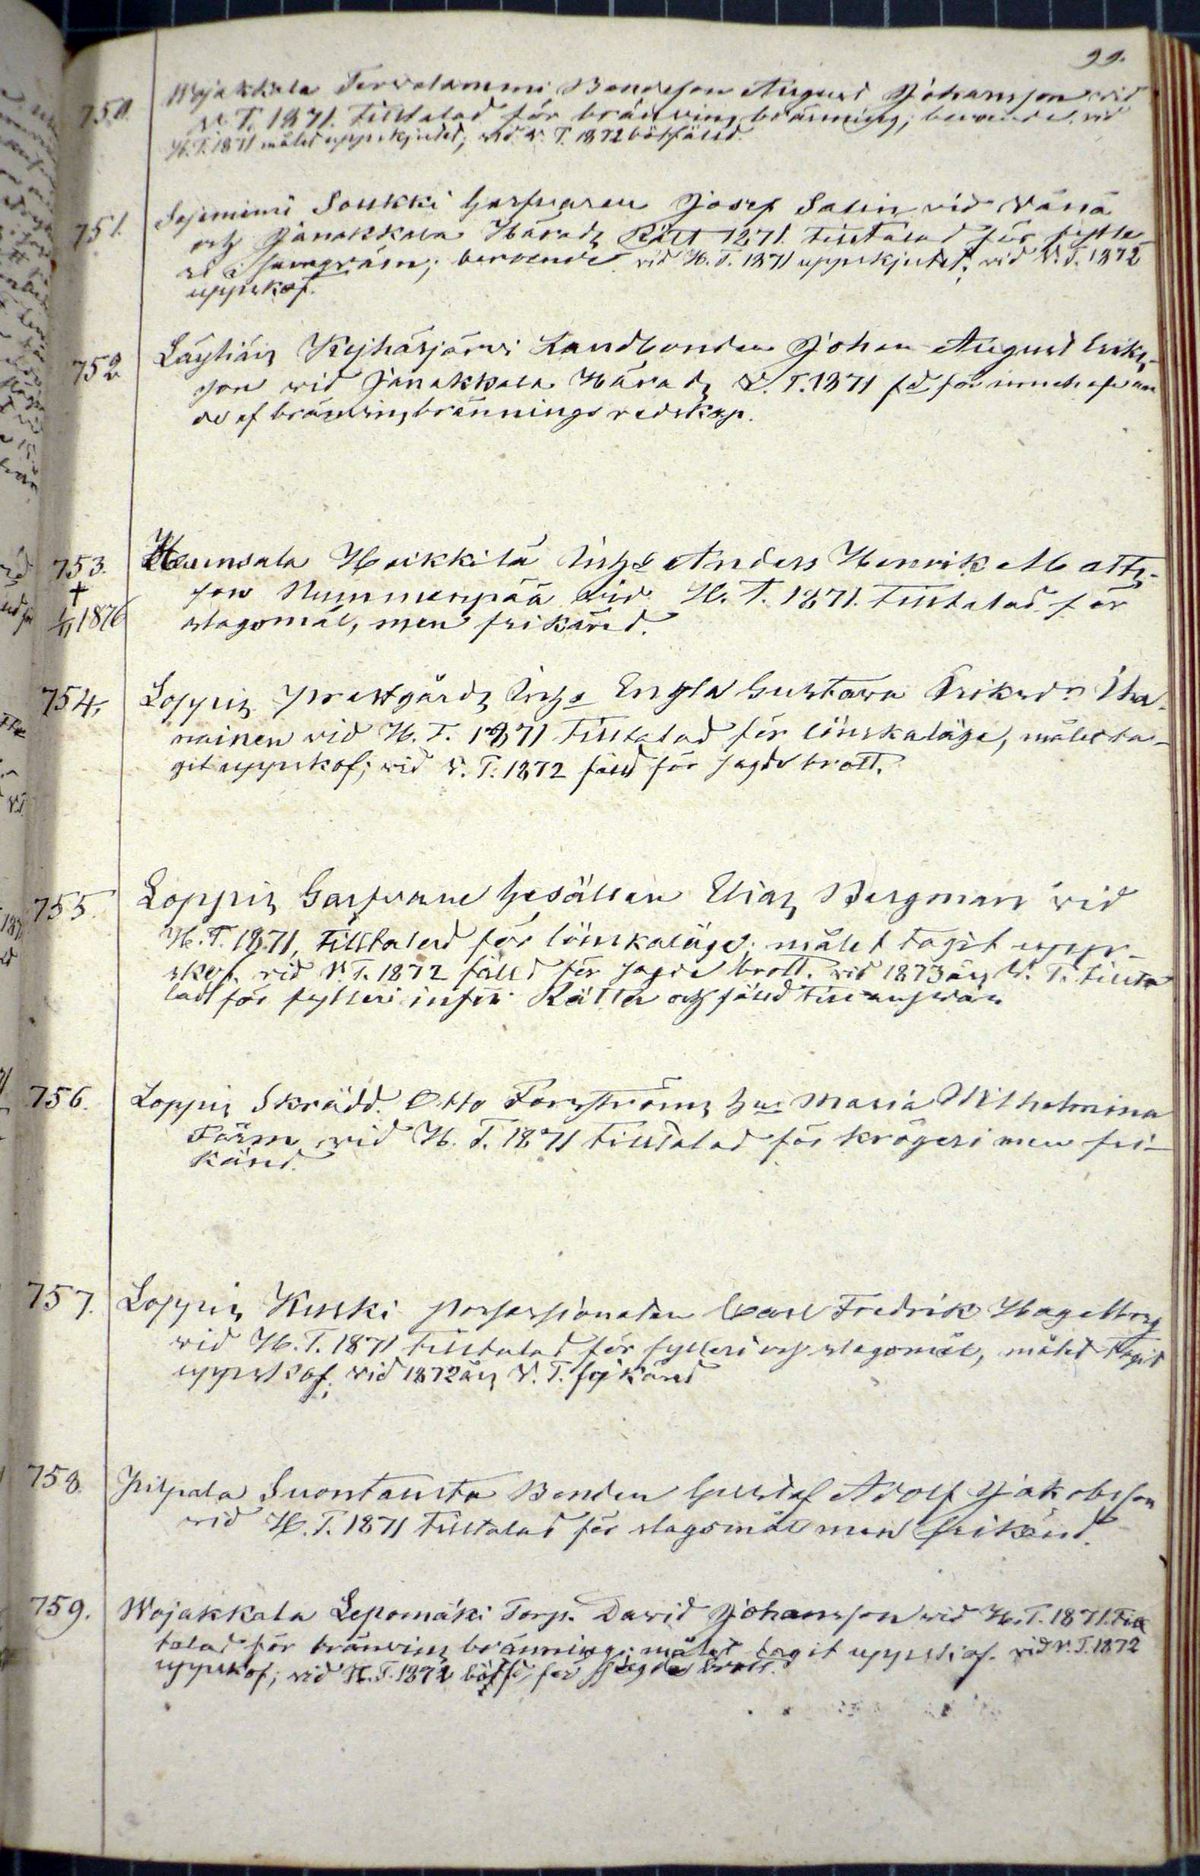 99.
750. Wojakkala Terwalammi Bondeson August Johansson vid
V. T. 1871 tilltalad för bränvins bränning; beroende vid
H. T. 1871 målet uppskjutet, vid V. T. 1872 bötfäld.
751. Sajniemi Soukki Garfvaren Josef Salin vid Vånå
och Janakkala Härads Rätt 1871 tilltalad för fylle-
ri; beroende vid H. T. 1871 uppskjutet; vid V. T. 1872
uppskof.
752. Läyliäis Kejhäsjärvi Landbonden Johan August Eriks-
son vid Janakkala Härads V. T. 1871 för innehafvan
de af bränvinsbrännings redskap.
753. Hunsala Heikkilä Anders Henrik Matts-
† son Nummenpää vid H. T. 1871 tilltalad för
1876 slagsmål, men frikänd.
754. Loppis prestgårds Engla Gustava Eriksdr
nainen vid H. T. 1871 tilltalad för lönskaläge, målet ta-
git uppskof; vid V. T. 1872 fäld för sagde brott.
755. Loppis Garfvare Gesällen Elias Bergman vid
H. T. 1871, tilltalad för lönskaläge; målet tagit upp-
skof. vid V. T. 1872 fälld för sagde brott. vid 1873 års V. T. tillta
lad för fylleri inför Rätta och fäld till ansvar
756. Loppis Skrädd. Otto Forsströms hu Maria Wilhelmina
Färm vid H. T. 1871 tilltalad för krögeri men fri-
känd.
757. Loppis Kurki possessionaten Carl Fredrik Hagelberg
vid H. T. 1871 tilltalad för fylleri och slagsmål, målet tagit
uppskof; vid 1872 års V. T. frikänd
758. Pilpala Suontausta Bonden Gustaf Adolf Jakobsson
vid H. T. 1871 tilltalad för slagsmål men frikänd.
759. Wojakkala Lepomäki Torp. David Johansson vid H. T. 1871. till
talad för bränvins bränning; målet tagit uppskof. vid V. T. 1872
uppskof; vid H. T. 1872 bötfd. för sagde brott.